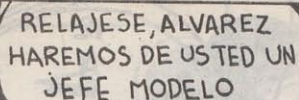 RELAJESE, ALVAREZ
HAREMOS DE USTED UN
JEFE MODELO